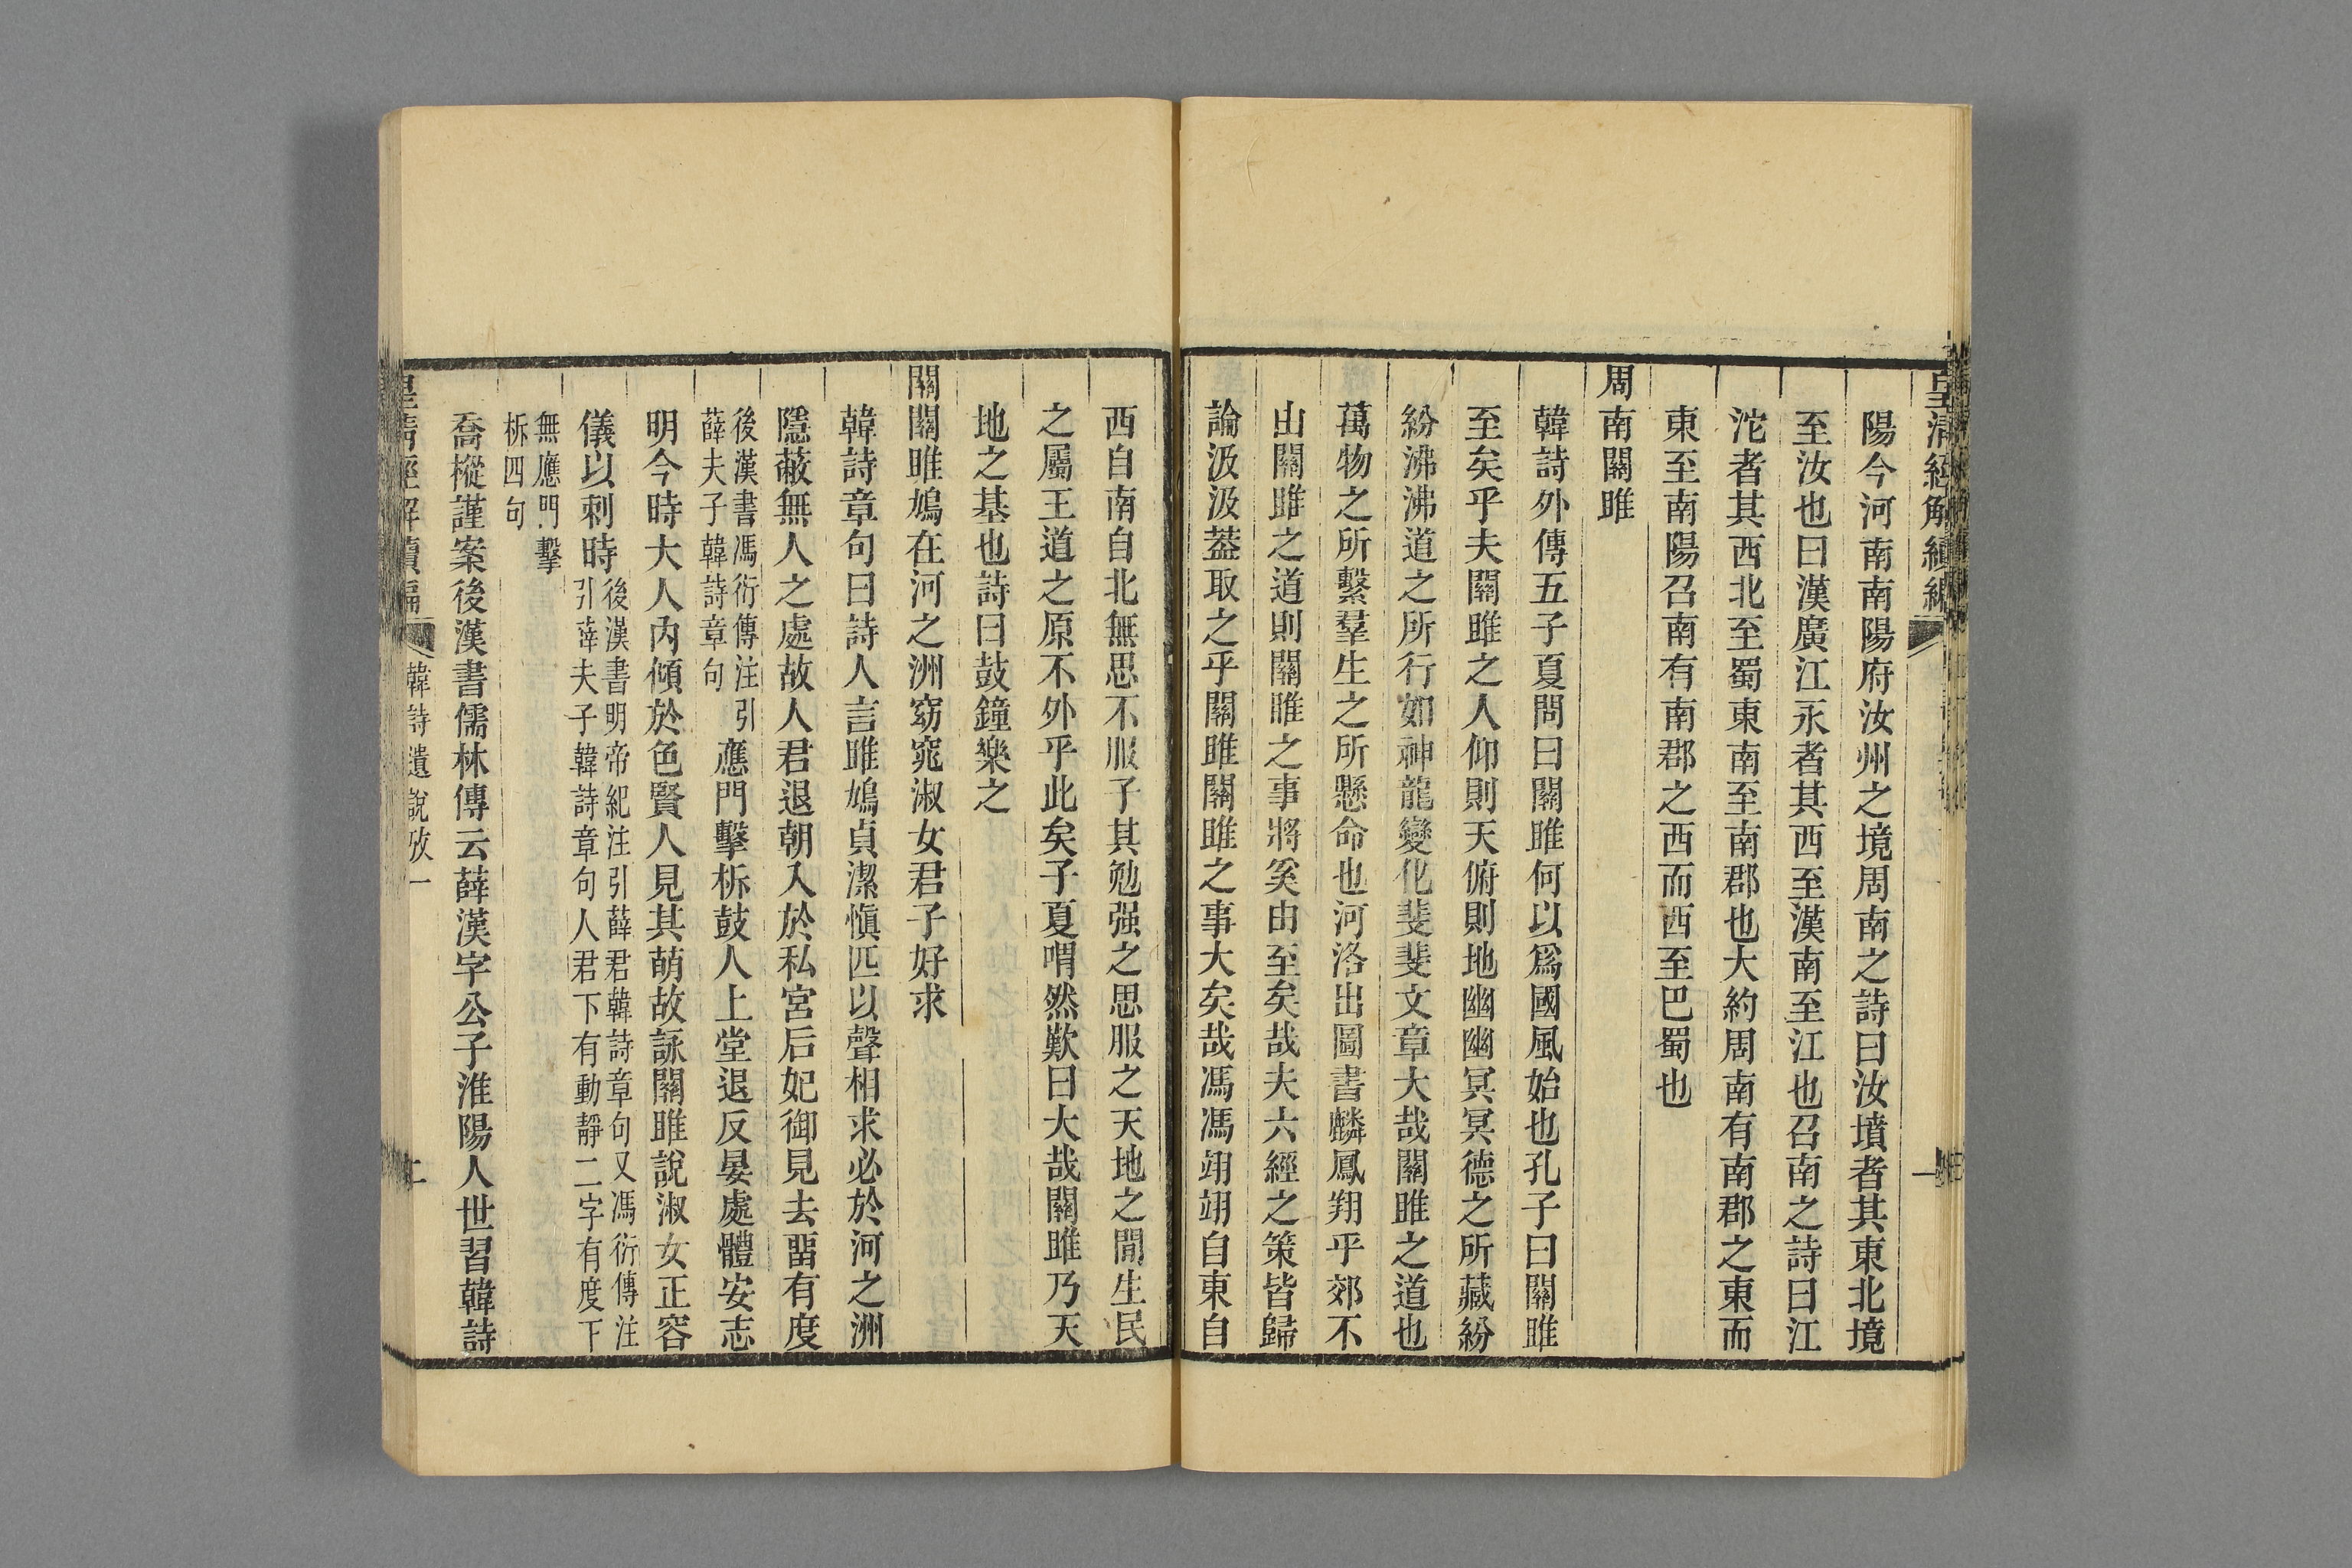 皇清經解續編
陽今河南南陽府汝州之境周南之詩曰汝墳者其東北境
至汝也曰漢廣江永者其西至漢南至江也召南之詩曰江
沱者其西北至蜀東南至南郡也大約周南有南郡之東而
東至南陽召南有南郡之西而西至巴蜀也
周南關雎
韓詩外傳五子夏問曰關雎何以爲國風始也孔子曰關雎
至矣乎夫關雎之人仰則天俯則地幽幽冥冥德之所藏紛
紛沸沸道之所行如神龍變化斐斐文章大哉關雎之道也
萬物之所繫羣生之所懸命也河洛出圖書麟鳳翔乎郊不
由關雎之道則關雎之事將奚由至矣哉夫六經之策皆歸
論汲汲葢取之乎關雎關雎之事大矣哉馮馮翊翊自東自
西自南自北無思不服子其勉强之思服之天地之閒生民
之屬王道之原不外乎此矣子夏喟然歎曰大哉關雎乃天
地之基也詩曰鼓鐘樂之
關關雎鳩在河之洲窈窕淑女君子好求
韓詩章句曰詩人言雎鳩貞潔愼匹以聲相求必於河之洲
隱蔽無人之處故人君退朝入於私宮后妃御見去畱有度
後漢書馮衍傳注引
薛夫子韓詩章句
應門擊柝鼓人上堂退反晏處體安志
明今時大人內傾於色賢人見其萌故詠關雎說淑女正容
儀以刺時
後漢書明帝紀注引薛君韓詩章句又馮衍傳注
引薛夫子韓詩章句人君下有動靜二字有度下
無應門擊
柝四句
喬樅謹案後漢書儒林傳云薛漢字公子淮陽人世習韓詩
皇清經解續編
韓詩遺說攷一